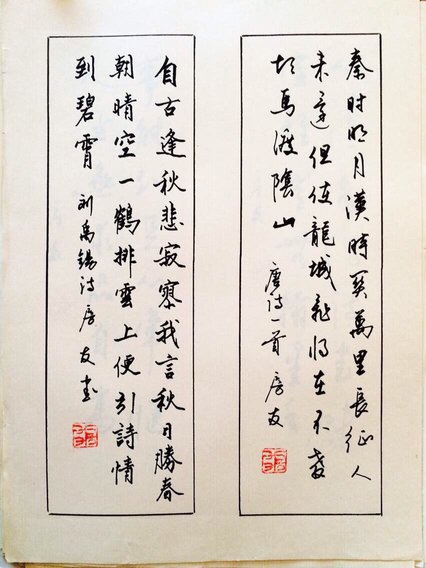 秦时明月漢時关萬里長征人
未還但使龍城飛将在不教
胡馬渡陰山 唐诗一首 房友
自古逢秋悲寂寥我言秋日勝春
朝晴空一鶴排雲上便引詩情
到碧霄 刘禹锡诗 房友书